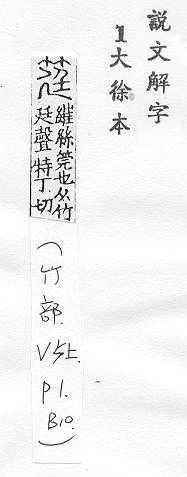 說文解字
1大徐本
筳
維絲筦也从竹
廷聲特丁切
(竹部.
V5上.
P1.
B10.)